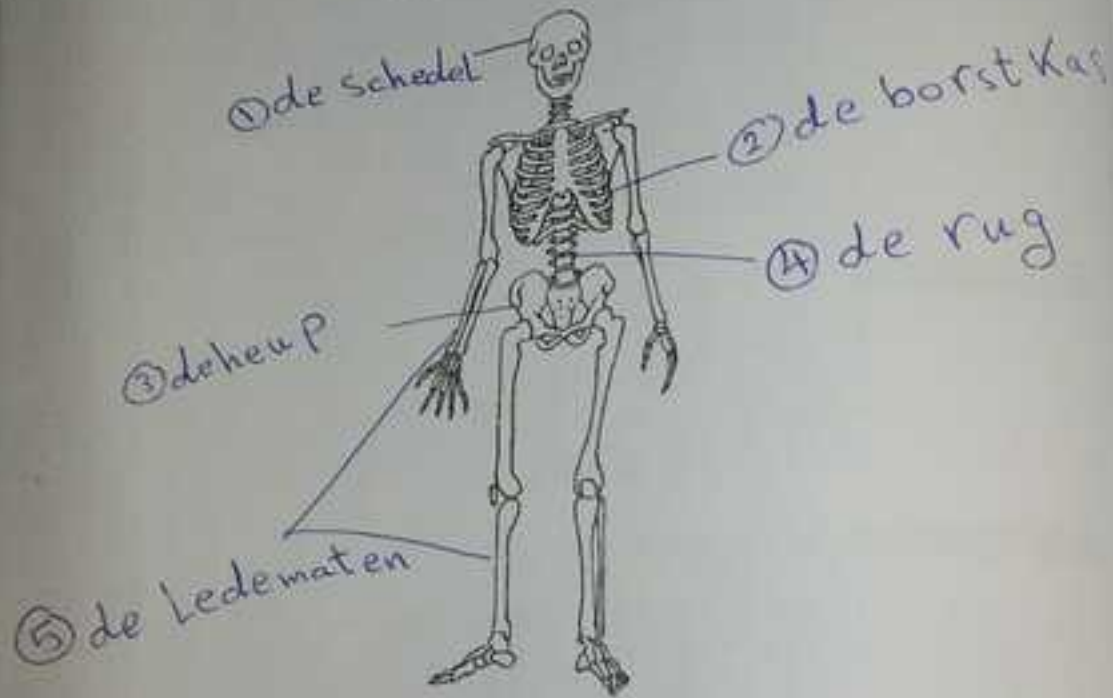 ① de schedel
② de borst Kas
③ deheup
④ de rug
⑤ de Ledematen